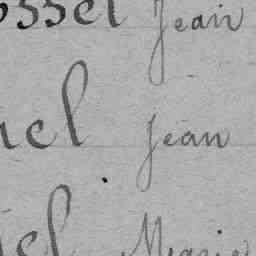 ossel Jean
el Jean
el Marie